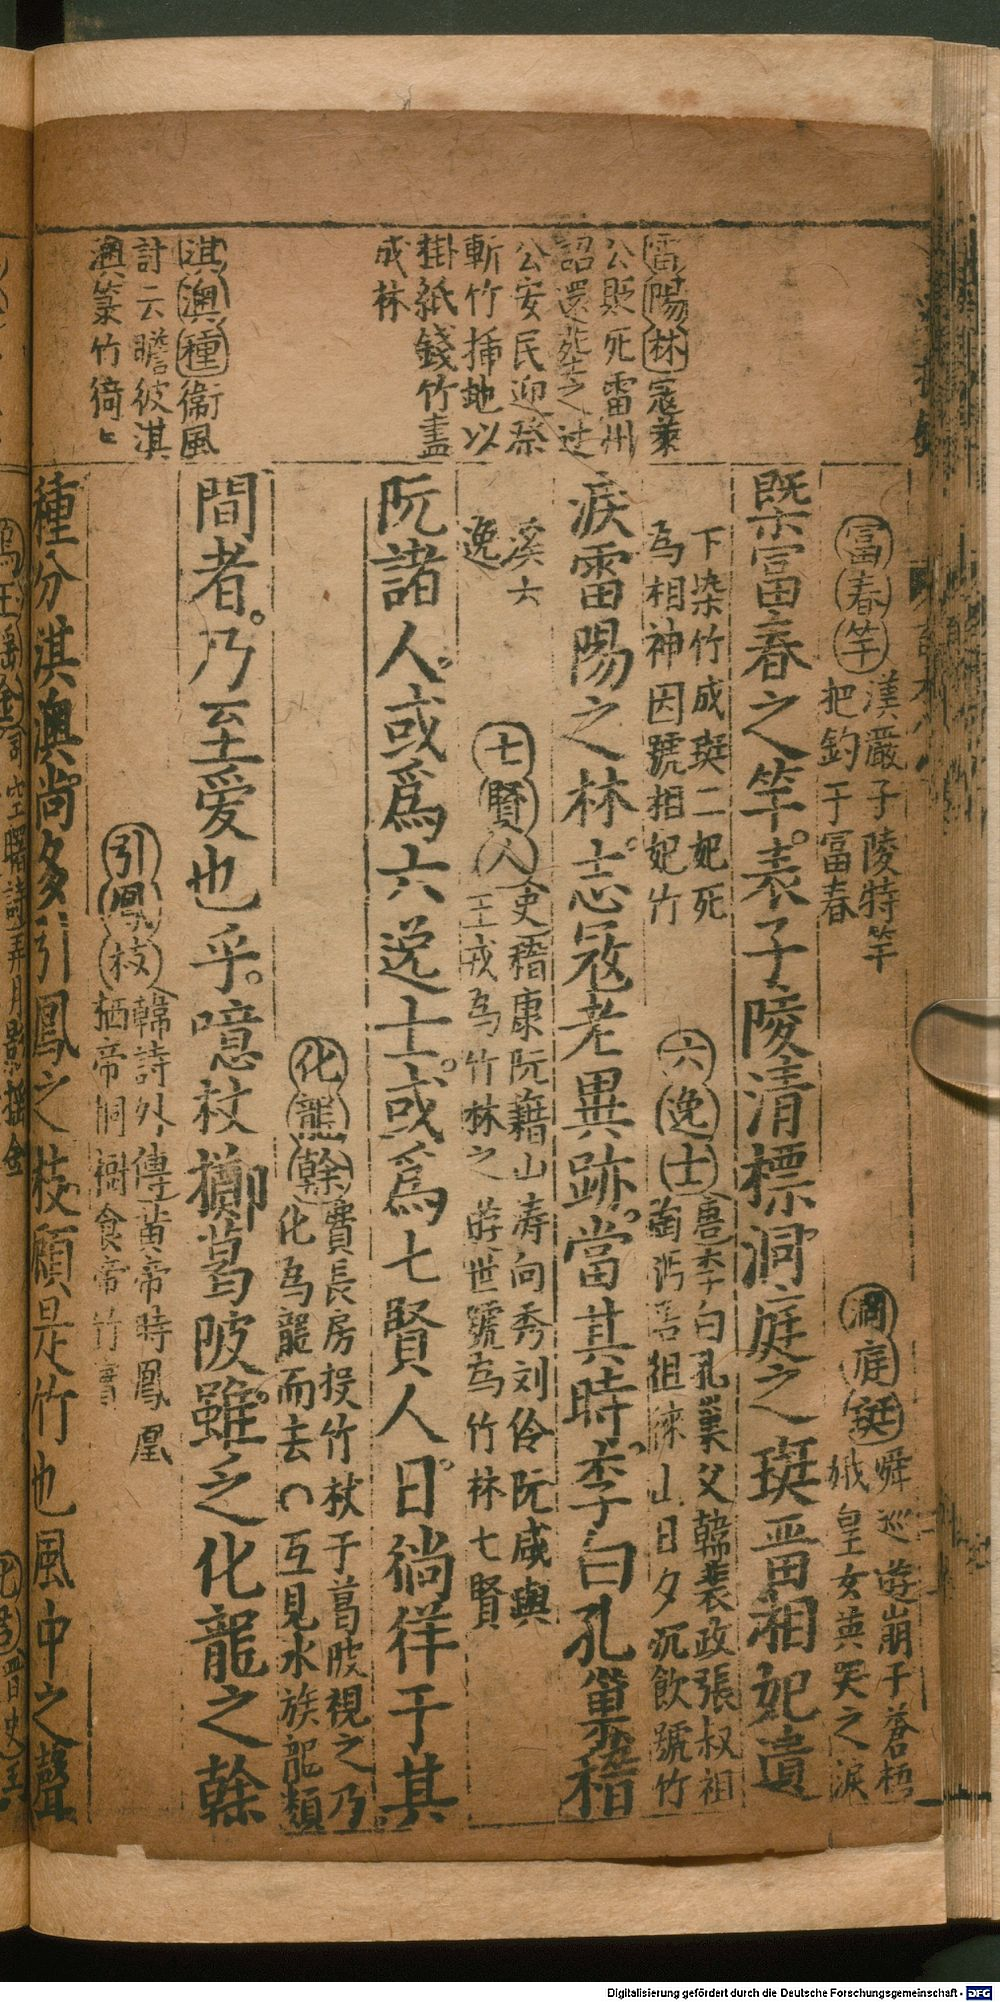 雷陽林寇萊
公貶死雷州
詔還葬之过
公安民迎祭
斬竹插地以
掛紙錢竹盡
成林
淇澳種衞風
詩云瞻彼淇
澳菉竹猗〻
富春竿漢嚴子陵特竿
把釣于富春
洞庭斑舜巡遊崩于蒼梧
娥皇女英哭之淚
槩富春之竿表子陵清標洞庭之斑畱湘妃遺
下染竹成斑二妃死
為相神因號相妃竹
六逸士唐李白孔巢父韓裴政張叔祖
陶沔居徂徠山日夕沉飲號竹
淚雷陽之林志冦老異跡當其時李白孔巢稽
溪六
逸
七賢人吏稽康阮籍山涛向秀刘伶阮咸與
王戎為竹林之遊世號為竹林七賢
阮諸人或爲六逸士或爲七賢人日徜徉于其
化龍榦費長房投竹杖于葛陂視之乃
化為龍而去○互見水族龍類
間者乃至爱也乎噫杖擲葛陂雖之化龍之榦
引鳳枝韓詩外傳黄帝時鳳凰
栖帝桐樹食帝竹實
種分淇澳尚多引鳳之枝願是竹也風中之聲
Digitalisierung gefördert durch die Deutsche Forschungsgemeinschaft - DFG